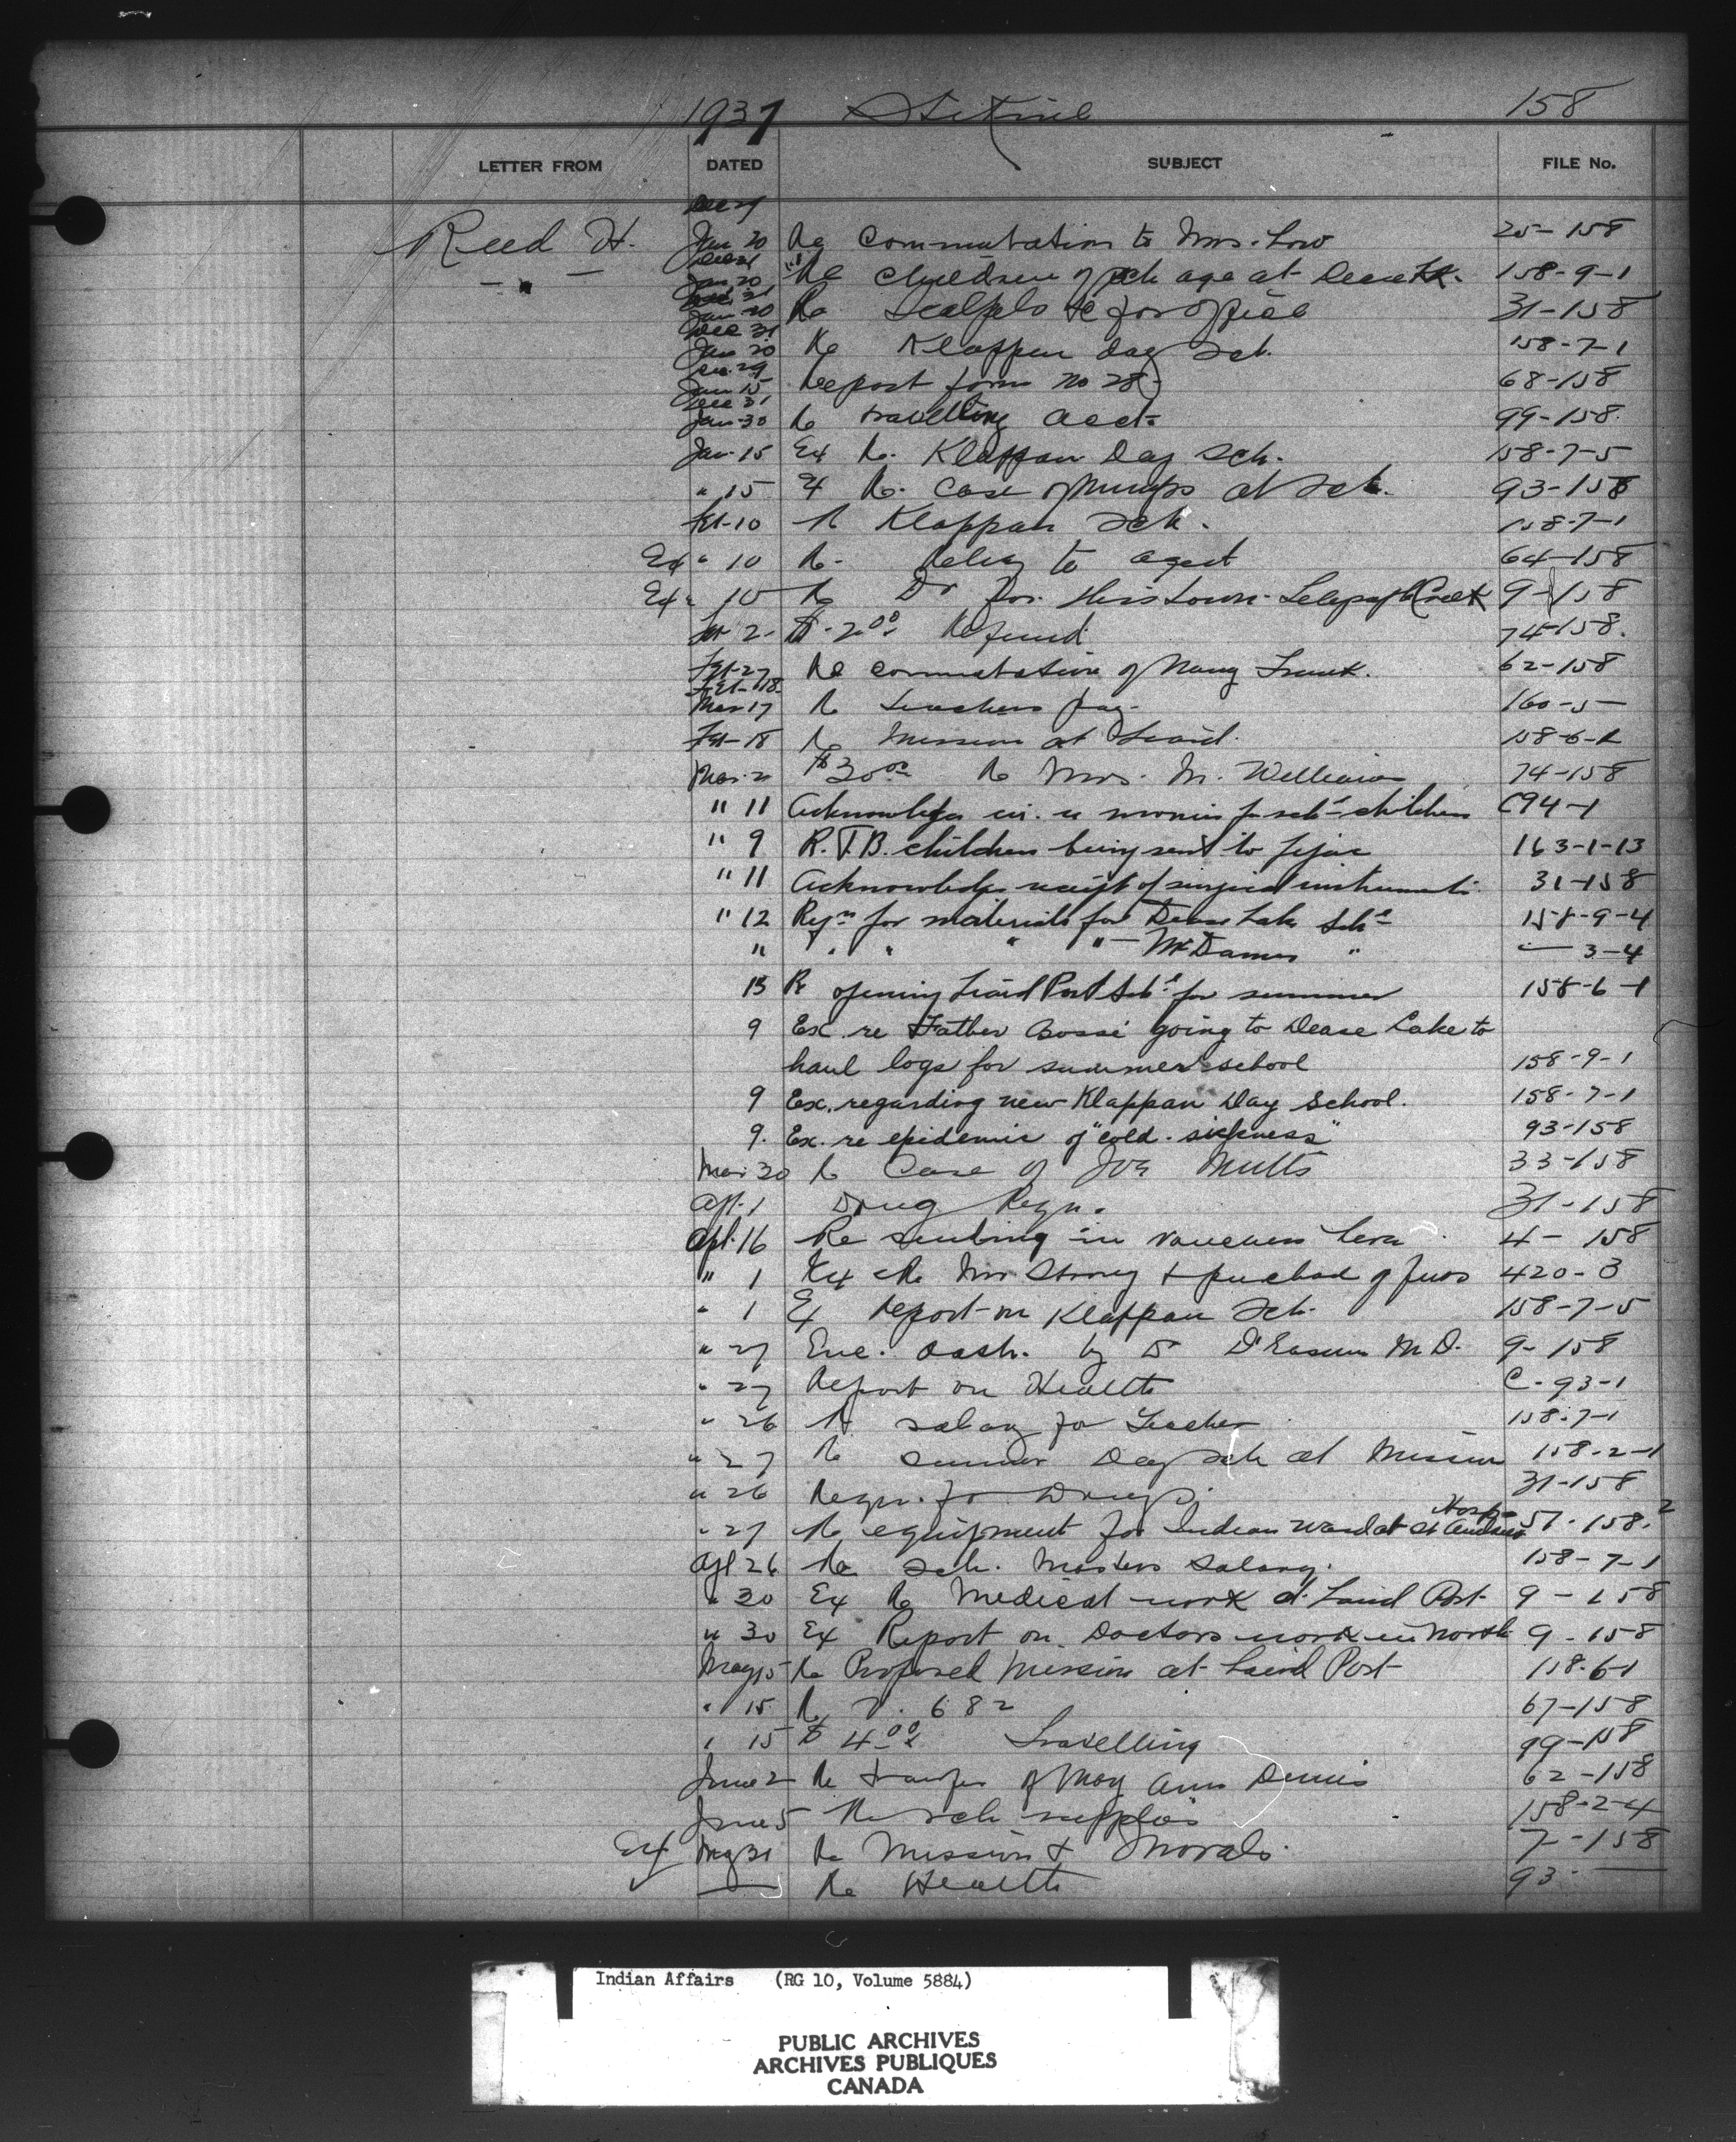 1937 Stikine 158
LETTER FROM DATED SUBJECT FILE No.
Dec 29
Reed H. Jan 20 Re Commutation to Mrs. Low 25-158
Dec 31
Jan 20 Re Children of sch age at Dease Lk. 158-9-1
Dec 31
Jan 20 Re Scalpels &c for office 31-158
Dec 31
Jan 20 Re Klappan Day Sch. 158-7-1
Dec 29
Jan 15 Report form no 28 68-158
Dec 31
Jan 30 Re travelling acct 99-158.
Jan 15 Ex Re. Klappan Day Sch. 158-7-5
" 15 Ex Re. Case of Mumps at Sch. 93-158
Feb-10 Re Klappan Sch. 158-7-1
Ex " 10 Re. to agent 64-158
Ex " 10 Re Dr for Telegraph Creek 9-158
2 $2.00 Refund 74-158.
Feb-27 Re commutation of Nancy Frank. 62-158
Feb-18
Mar 17 Re teachers pay 160-5-
Feb-18 Re Mission at Liard. 158-6-1
Mar. 2 $30.00 Re Mrs. M. Williams 74-158
" 11 Acknowledges children C94-1
" 9 R. T.B. children being sent to 163-1-13
" 11 Acknowledges receipt of surgical instruments 31-158
" 12 Reqn for materials for Dease Lake Schl 158-9-4
" " " " " McDames " — 3-4
13 Re opening Liard Post Schl for summer 158-6-1
9 Ex. re Father Bossé going to Dease Lake to
haul logs for summer school 158-9-1
9 Ex. regarding new Klappan Day School. 158-7-1
9. Ex. re epidemic of "cold-sickness" 93-158
Mar 30 Re Case of Joe Mults 33-158
Apl. 1 Drug Reqn. 31-158
Apl. 16 Re sending in vouchers 4-158
" 1 Ex Re Mr Strong & purchase of furs 420-3
" 1 Ex Report on Klappan Sch. 158-7-5
" 27 Enc. by Dr M.D. 9-158
" 27 Report on Health C-93-1
" 26 Re salary for Teacher 158-7-1
" 27 Re Summer Day Sch at Mission 158-2-1
" 26 Reqn. for Drugs. 31-158
" 27 Re equipment for Indian Ward at St Andrews Hosp 57-158-2
Apl 26 Re Sch. Masters Salary. 158-7-1
" 30 Ex Re Medical work at Liard Post 9-158
" 30 Ex Report on Doctors work in North 9-158
May 15 Re Proposed Mission at Liard Post 158-6-1
" 15 Re V. 682 67-158
" 15 $4.00 Travelling 99-158
June 2 Re transfer of May Ann Dennis 62-158
June 5 Re sch supplies 158-2-4
Ex May 31 Re Mission & Morals. 7-158
— Re Health 93-—
Indian Affairs (RG 10, Volume 5884)
PUBLIC ARCHIVES
ARCHIVES PUBLIQUES
CANADA